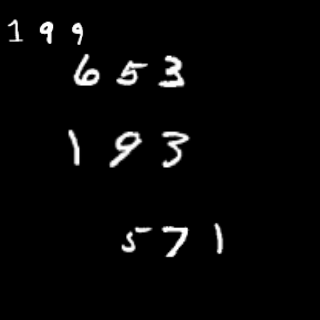 1 9 9
6 5 3
1 9 3
5 7 1